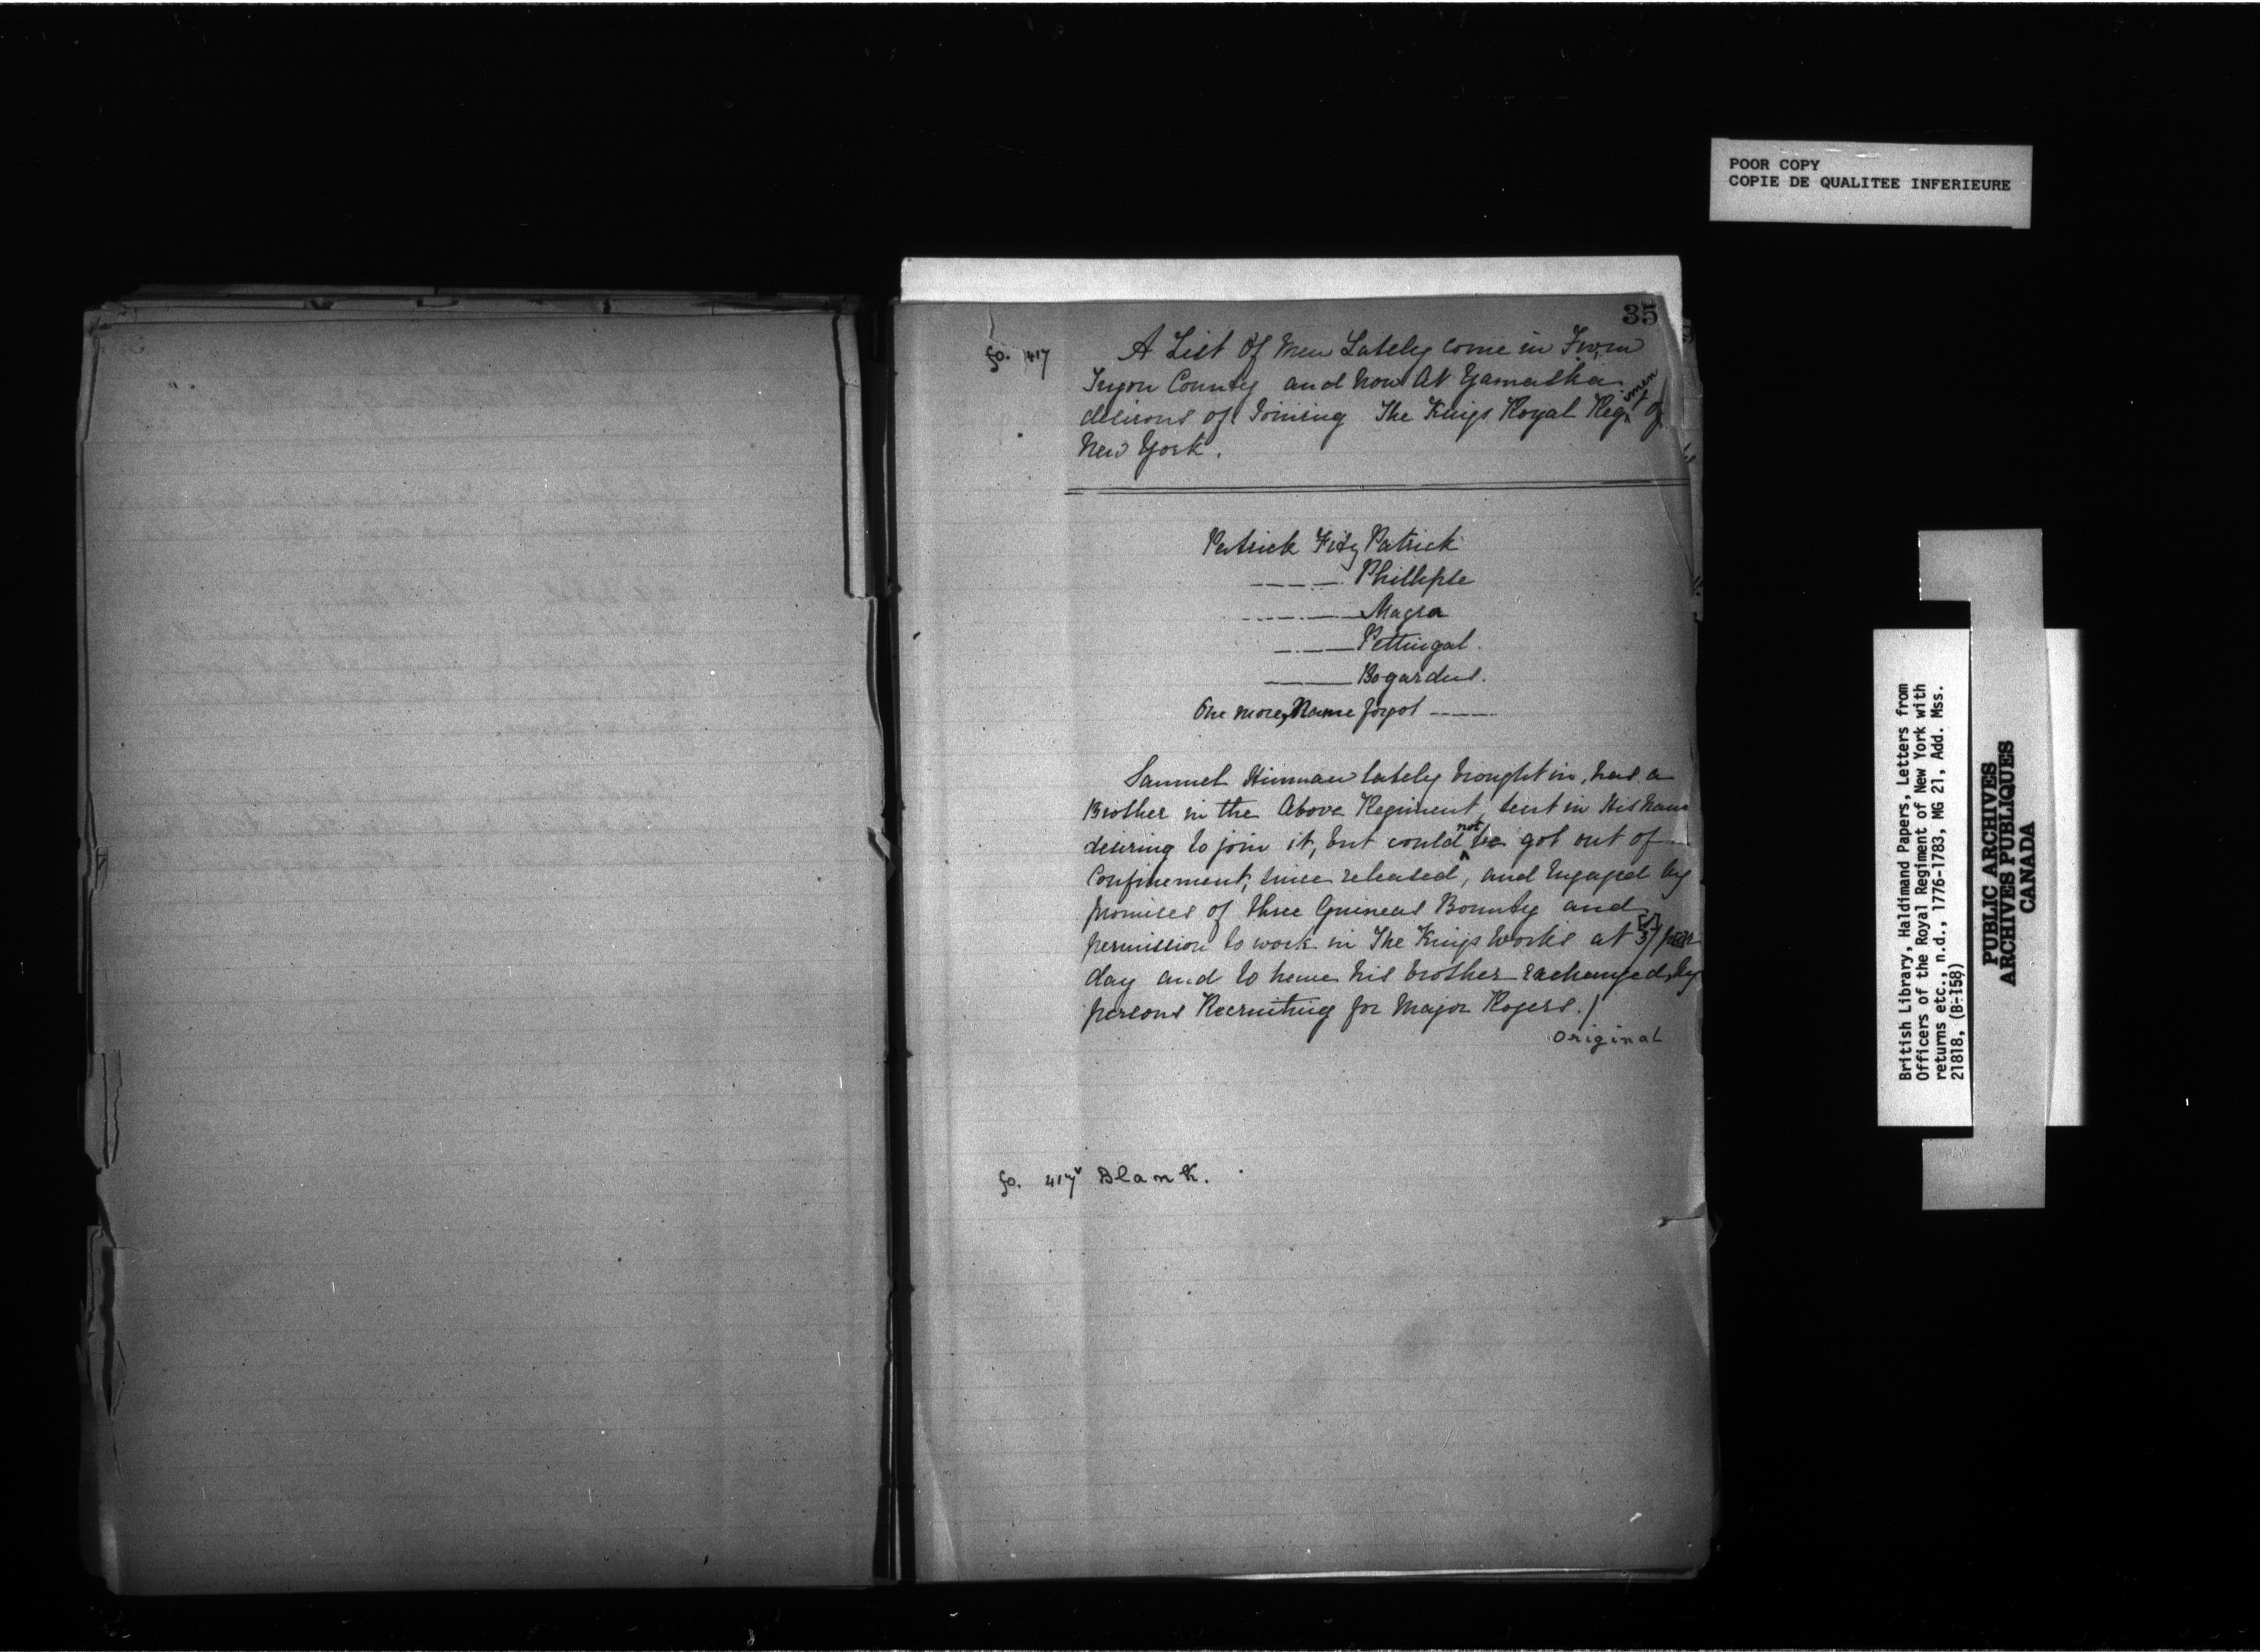 POOR COPY
COPIE DE QUALITEE INFERIEURE
35
fo. 417
A List Of Men Lately come in From
Tryon County and now At Yamaska
desirous of Joining The Kings Royal Regiment Of
New York.
Patrick Fitz Patrick
—— Phillipse
—— Magra
—— Pettingal.
—— Bogardus.
One more, Name forgot ——
Samuel Hinman lately brought in, has a
Brother in the Above Regiment sent in His name
desiring to join it, but could not be got out of
Confinement, since released, and Engaged by
promises of three Guineas Bounty and
permission to work in The Kings Works at [5/] per
day and to have his brother exchanged, by
persons Recruiting for Major Rogers./
Original
fo. 417v Blank.
British Library, Haldimand Papers, Letters from
Officers of the Royal Regiment of New York with
returns etc., n.d., 1776-1783, MG 21, Add. Mss.
21818, (B-158)
PUBLIC ARCHIVES
ARCHIVES PUBLIQUES
CANADA